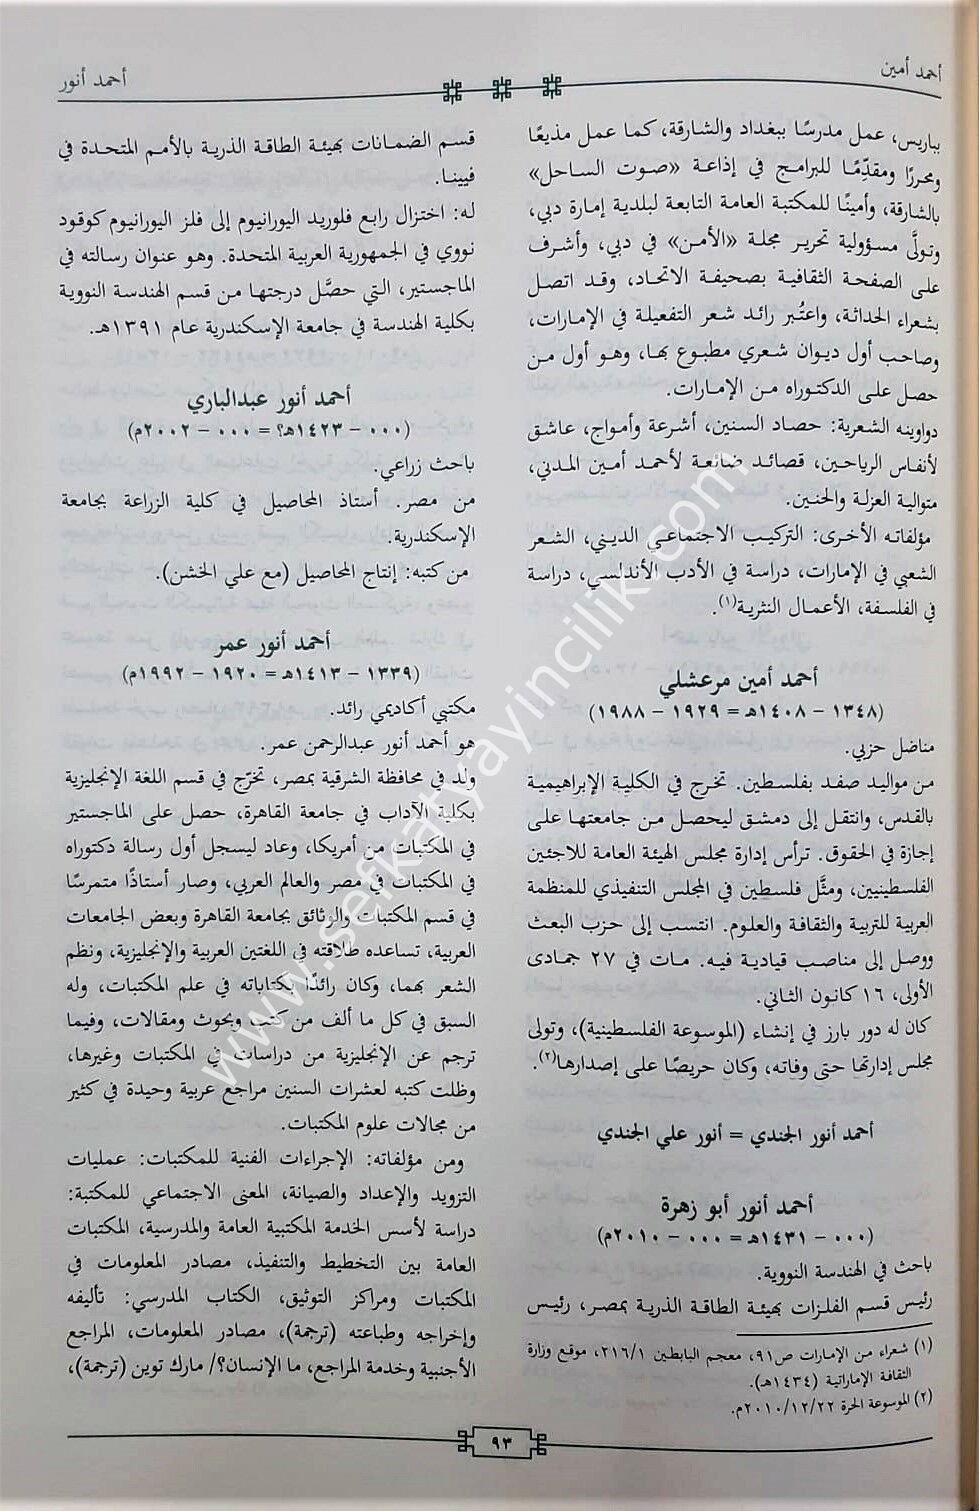 أحمد أمين
أحمد أنور
بباريس، عمل مدرسًا ببغداد والشارقة، كما عمل مذيعًا
ومحررًا ومقدِّمًا للبرامج في إذاعة «صوت الساحل»
بالشارقة، وأمينًا للمكتبة العامة التابعة لبلدية إمارة دبي،
وتولَّى مسؤولية تحرير مجلة «الأمن» في دبي، وأشرف
على الصفحة الثقافية بصحيفة الاتحاد، وقد اتصل
بشعراء الحداثة، واعتُبر رائد شعر التفعيلة في الإمارات،
وصاحب أول ديوان شعري مطبوع بها، وهو أول من
حصل على الدكتوراه من الإمارات.
دواوينه الشعرية: حصاد السنين، أشرعة وأمواج، عاشق
لأنفاس الرياحين، قصائد ضائعة لأحمد أمين المدني،
متوالية العزلة والحنين.
مؤلفاته الأخرى: التركيب الاجتماعي الديني، الشعر
الشعبي في الإمارات، دراسة في الأدب الأندلسي، دراسة
في الفلسفة، الأعمال النثرية(١).
أحمد أمين مرعشلي
(١٣٤٨ - ١٤٠٨هـ = ١٩٢٩ - ١٩٨٨)
مناضل حزبي.
من مواليد صفد بفلسطين. تخرج في الكلية الإبراهيمية
بالقدس، وانتقل إلى دمشق ليحصل من جامعتها على
إجازة في الحقوق. ترأس إدارة مجلس الهيئة العامة للاجئين
الفلسطينيين، ومثَّل فلسطين في المجلس التنفيذي للمنظمة
العربية للتربية والثقافة والعلوم. انتسب إلى حزب البعث
ووصل إلى مناصب قيادية فيه. مات في ٢٧ جمادى
الأولى، ١٦ كانون الثاني.
كان له دور بارز في إنشاء (الموسوعة الفلسطينية)، وتولى
مجلس إدارتها حتى وفاته، وكان حريصًا على إصدارها(٢).
أحمد أنور الجندي = أنور علي الجندي
أحمد أنور أبو زهرة
(٠٠٠ - ١٤٣١هـ = ٠٠٠ - ٢٠١٠م)
باحث في الهندسة النووية.
رئيس قسم الفلزات بهيئة الطاقة الذرية بمصر، رئيس
(١) شعراء من الإمارات ص٩١، معجم البابطين ٢١٦/١، موقع وزارة
الثقافة الإماراتية (١٤٣٤هـ).
(٢) الموسوعة الحرة ٢٠١٠/١٢/٢٢م.
قسم الضمانات بهيئة الطاقة الذرية بالأمم المتحدة في
فيينا.
له: اختزال رابع فلوريد اليورانيوم إلى فلز اليورانيوم كوقود
نووي في الجمهورية العربية المتحدة. وهو عنوان رسالته في
الماجستير، التي حصَّل درجتها من قسم الهندسة النووية
بكلية الهندسة في جامعة الإسكندرية عام ١٣٩١هـ.
أحمد أنور عبدالباري
(٠٠٠ - ١٤٢٣هـ؟ = ٠٠٠ - ٢٠٠٢م)
باحث زراعي.
من مصر. أستاذ المحاصيل في كلية الزراعة بجامعة
الإسكندرية.
من كتبه: إنتاج المحاصيل (مع علي الخشن).
أحمد أنور عمر
(١٣٣٩ - ١٤١٣هـ = ١٩٢٠ - ١٩٩٢م)
مكتبي أكاديمي رائد.
هو أحمد أنور عبدالرحمن عمر.
ولد في محافظة الشرقية بمصر، تخرّج في قسم اللغة الإنجليزية
بكلية الآداب في جامعة القاهرة، حصل على الماجستير
في المكتبات من أمريكا، وعاد ليسجل أول رسالة دكتوراه
في المكتبات في مصر والعالم العربي، وصار أستاذًا متمرسًا
في قسم المكتبات والوثائق بجامعة القاهرة وبعض الجامعات
العربية، تساعده طلاقته في اللغتين العربية والإنجليزية، ونظم
الشعر بهما، وكان رائدًا بكتاباته في علم المكتبات، وله
السبق في كل ما ألف من كتب وبحوث ومقالات، وفيما
ترجم عن الإنجليزية من دراسات في المكتبات وغيرها،
وظلت كتبه لعشرات السنين مراجع عربية وحيدة في كثير
من مجالات علوم المكتبات.
ومن مؤلفاته: الإجراءات الفنية للمكتبات: عمليات
التزويد والإعداد والصيانة، المعنى الاجتماعي للمكتبة:
دراسة لأسس الخدمة المكتبية العامة والمدرسية، المكتبات
العامة بين التخطيط والتنفيذ، مصادر المعلومات في
المكتبات ومراكز التوثيق، الكتاب المدرسي: تأليفه
وإخراجه وطباعته (ترجمة)، مصادر المعلومات، المراجع
الأجنبية وخدمة المراجع، ما الإنسان؟/ مارك توين (ترجمة)،
٩٣
www.sefkatyayincilik.com